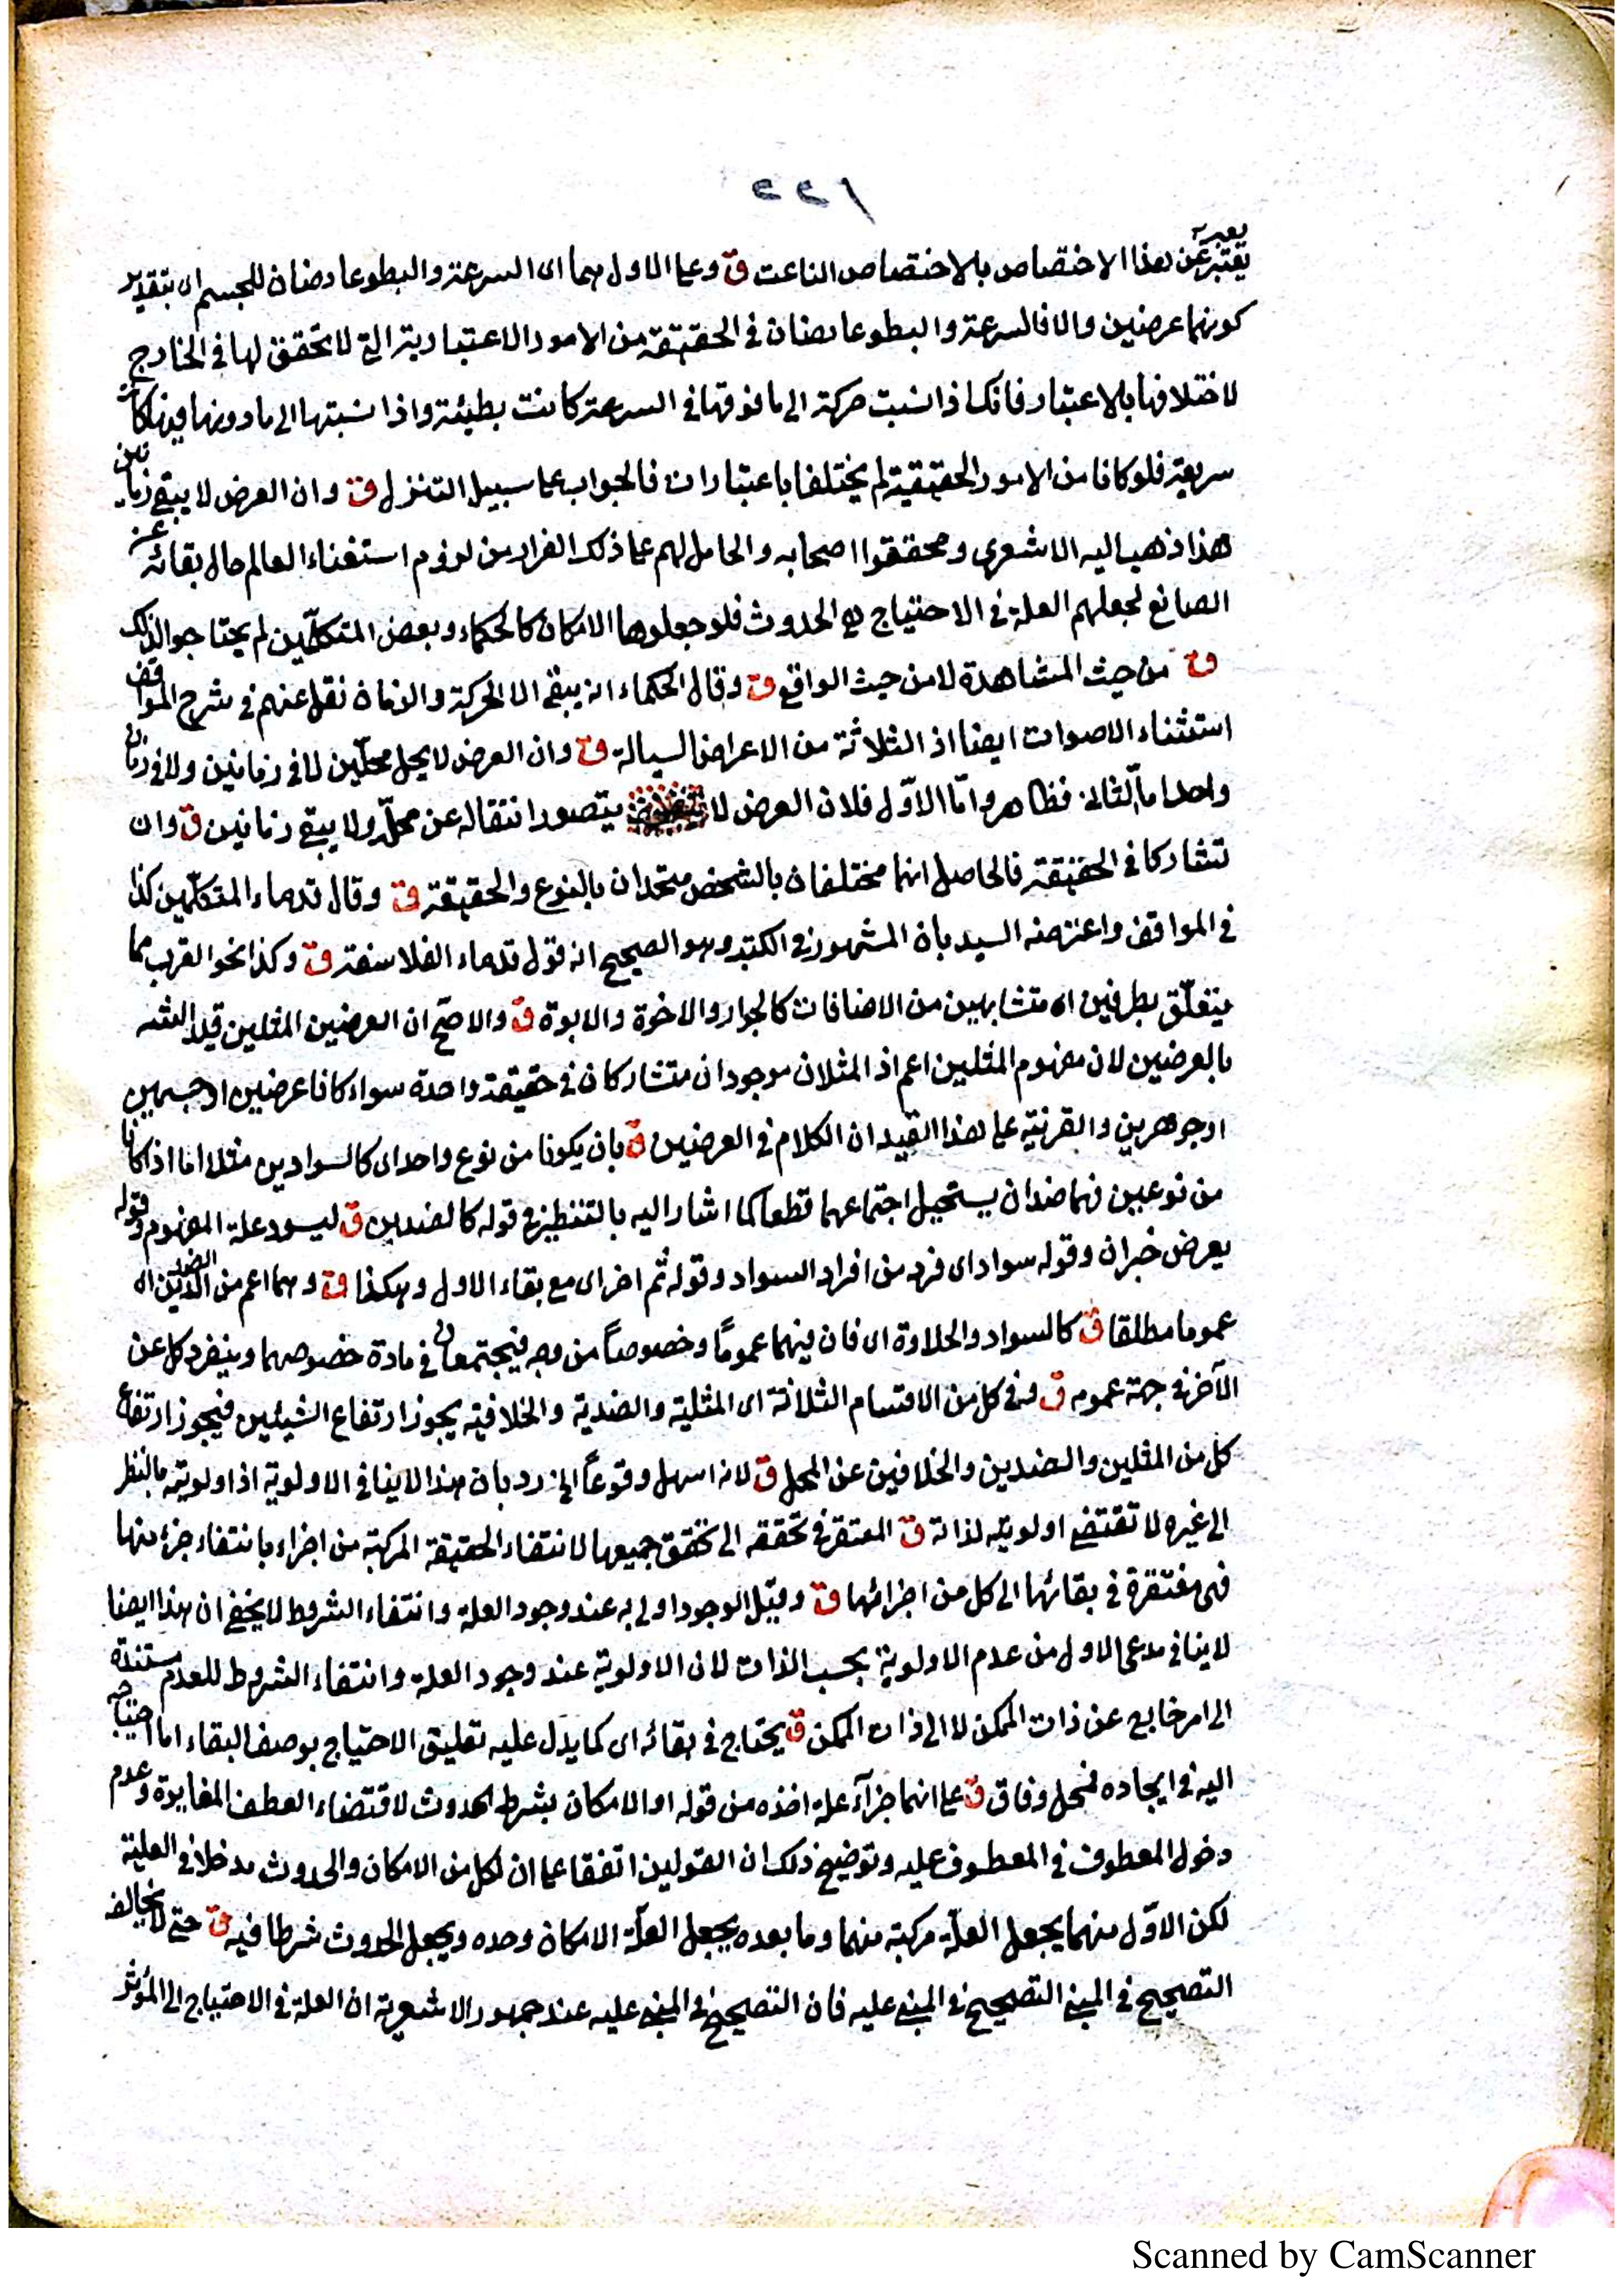 ١٢٢
يعبر
يعتبر عن هذا الاختصاص بالاختصاص الناعت ق وعلى الاول هما اى السرعة والبطو عارضان للجسم اى بتقدير
كونهما عرضين والا فالسرعة والبطو عارضان فى الحقيقة من الامور الاعتبارية التى لا تحقق لها فى الخارج
لاختلافها بالاعتبار فانك اذا نسبت حركة الى ما فوقها فى السرعة كانت بطيئة واذا نسبتها الى ما دونها فيها كانت
سريعة فلو كانا من الامور الحقيقية لم يختلفا باعتبارات فالجواب على سبيل التنزل ق وان العرض لا يبقى زمانين
هذا ذهب اليه الاشعرى ومحققوا اصحابه والحامل لهم على ذلك الفرار من لزوم استغناء العالم حال بقائه عن
الصانع لجعلهم العلة فى الاحتياج هى الحدوث فلو جعلوها الامكان كالحكماء وبعض المتكلمين لم يحتاجوا لذلك
ق من حيث المشاهدة لا من حيث الواقع ق وقال الحكماء انه يبقى الا الحركة والزمان نقل عنهم فى شرح المواقف
استثناء الاصوات ايضا اذ الثلاثة من الاعراض السيالة ق وان العرض لا يحل محلّين لا فى زمانين ولا فى زمان
واحد اما الثانى فظاهر وامّا الاوّل فلان العرض لا يتصور انتقاله عن محلّه ولا يبقى زمانين ق وان
تشاركا فى الحقيقة فالحاصل انهما مختلفان بالشخص متحدان بالنوع والحقيقة ق وقال قدماء المتكلّمين كذا
فى المواقف واعترضه السيد بان المشهور فى الكتب وهو الصحيح انه قول قدماء الفلاسفة ق وكذا نحو القرب مما
يتعلّق بطرفين اه متشابهين من الاضافات كالجوار والاخوة والابوة ق والاصحّ ان العرضين المثلين قيد الشه
بالعرضين لان مفهوم المثلين اعم اذ المثلان موجودان متشاركان فى حقيقة واحدة سواء كانا عرضين او جسمين
او جوهرين والقرنية على هذا القيد ان الكلام فى العرضين ق بان يكونا من نوع واحد اى كالسوادين مثلا اما اذا كانا
من نوعين فهما ضدان يستحيل اجتماعهما قطعا كما اشار اليه بالتنظير فى قوله كالضدين ق ليسود علة المفهوم وقوله
يعرض خبران وقوله سواد اى فرد من افراد السواد وقوله ثم اخر اى مع بقاء الاول وهكذا ق وهما اعم من الضدين اه
عموما مطلقا ق كالسواد والحلاوة اى فان بينهما عموماً وخصوصاً من وجه فيجتمعان فى مادة خصوصهما وينفرد كل عن
الآخر فى جهة عمومه ق وفى كل من الاقسام الثلاثة اى المثلية والضدية والخلافية يجوز ارتفاع الشيئين فيجوز ارتفاع
كل من المثلين والضدين والخلافين عن المحل ق لانه اسهل وقوعاً الخ رد بان هذا لا ينافى الاولوية اذ اولويته بالنظر
الى غيره لا تقتضى اولويته لذاته ق المفتقر فى تحققه الى تحقق جميعها لانتفاء الحقيقة المركبة من اجزاء بانتفاء جزء منها
فهى مفتقرة فى بقائها الى كل من اجزائها ق وقيل الوجود اولى به عند وجود العلة وانتفاء الشروط لا يخفى ان هذا ايضا
لا ينافى مدعى الاول من عدم الاولوية بحسب الذات لان الاولوية عند وجود العلة وانتفاء الشروط للعدم مستندة
الى امر خارج عن ذات الممكن لا الى ذات الممكن ق يحتاج فى بقائه اى كما يدل عليه تعليق الاحتياج بوصف البقاء اما احتياجه
اليه فى ايجاده فمحل وفاق ق على انهما جزآ علة اخذه من قوله او الامكان بشرط الحدوث لاقتضاء العطف المغايرة وعدم
دخول المعطوف فى المعطوف عليه وتوضيح ذلك ان القولين اتفقا على ان لكل من الامكان والحدوث مدخلا فى العلية
لكن الاوّل منهما يجعل العلّة مركبة منهما وما بعده يجعل العلّة الامكان وحده ويجعل الحدوث شرطا فيه ق حتى لا يخالف
التصحيح فى المبنى التصحيح فى المبنى عليه فان التصحيح فى المبنى عليه عند جمهور الاشعرية ان العلة فى الاحتياج الى المؤثر
Scanned by CamScanner